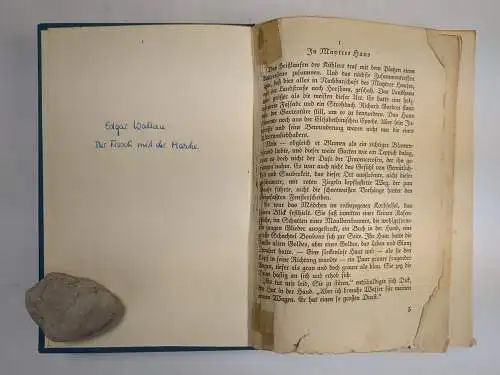 Edgar Wallace
Der Frosch mit der Maske
1
In Maytree Haus
Das Heißlaufen des Kühlers traf mit dem Platzen eines
zusammen. Und das nächste Zusammentreffen
daß dies alles in Nachbarschaft des Maytree Hauses,
der Landstraße nach Horsham, geschah. Das Landhaus
größer als die meisten dieser Art. Es hatte eine
Fassade und ein Strohdach. Richard Gordon stand
der Gartentüre still, um es zu bewundern. Das Haus
noch aus der Elisabethinischen Epoche. Aber sein
und seine Bewunderung waren nicht nur die des
Nein — obgleich er Blumen als ein richtiger Blumen-
liebte, und dieser weite Garten wie ein Teppich
vor ihm. Es war auch nicht das Gefühl von Gemütlich-
keit und Sauberkeit, das dieser Ort ausströmte, nicht
mit roten Ziegeln gepflasterte Weg, der zum
führte, nicht die schneeweißen Vorhänge hinter den
Fensterscheiben.
Es war das Mädchen im rotbezogenen Korbsessel, das
seinen Blick festhielt. Sie saß inmitten einer kleinen Rasen-
fläche, im Schatten eines Maulbeerbaumes, die wohlgeform-
ten jungen Glieder ausgestreckt, ein Buch in der Hand, eine
große Schachtel Bonbons sich zur Seite. Ihr Haar hatte die
alten Goldes, aber eines Goldes, das Leben und Glanz
hatte. — Eine Haut und — als sie den
Kopf in seine Richtung wandte — ein Paar grauer fragender
Augen, tiefer als grau und doch grauer als blau. Sie zog die
Füße hastig an sich und erhob sich.
„Es tut mir leid, Sie zu stören,“ entschuldigte sich Dick,
den Hut in der Hand. „Aber ich brauche Wasser für meinen
armen Wagen. Er hat einen so großen Durst.“
5